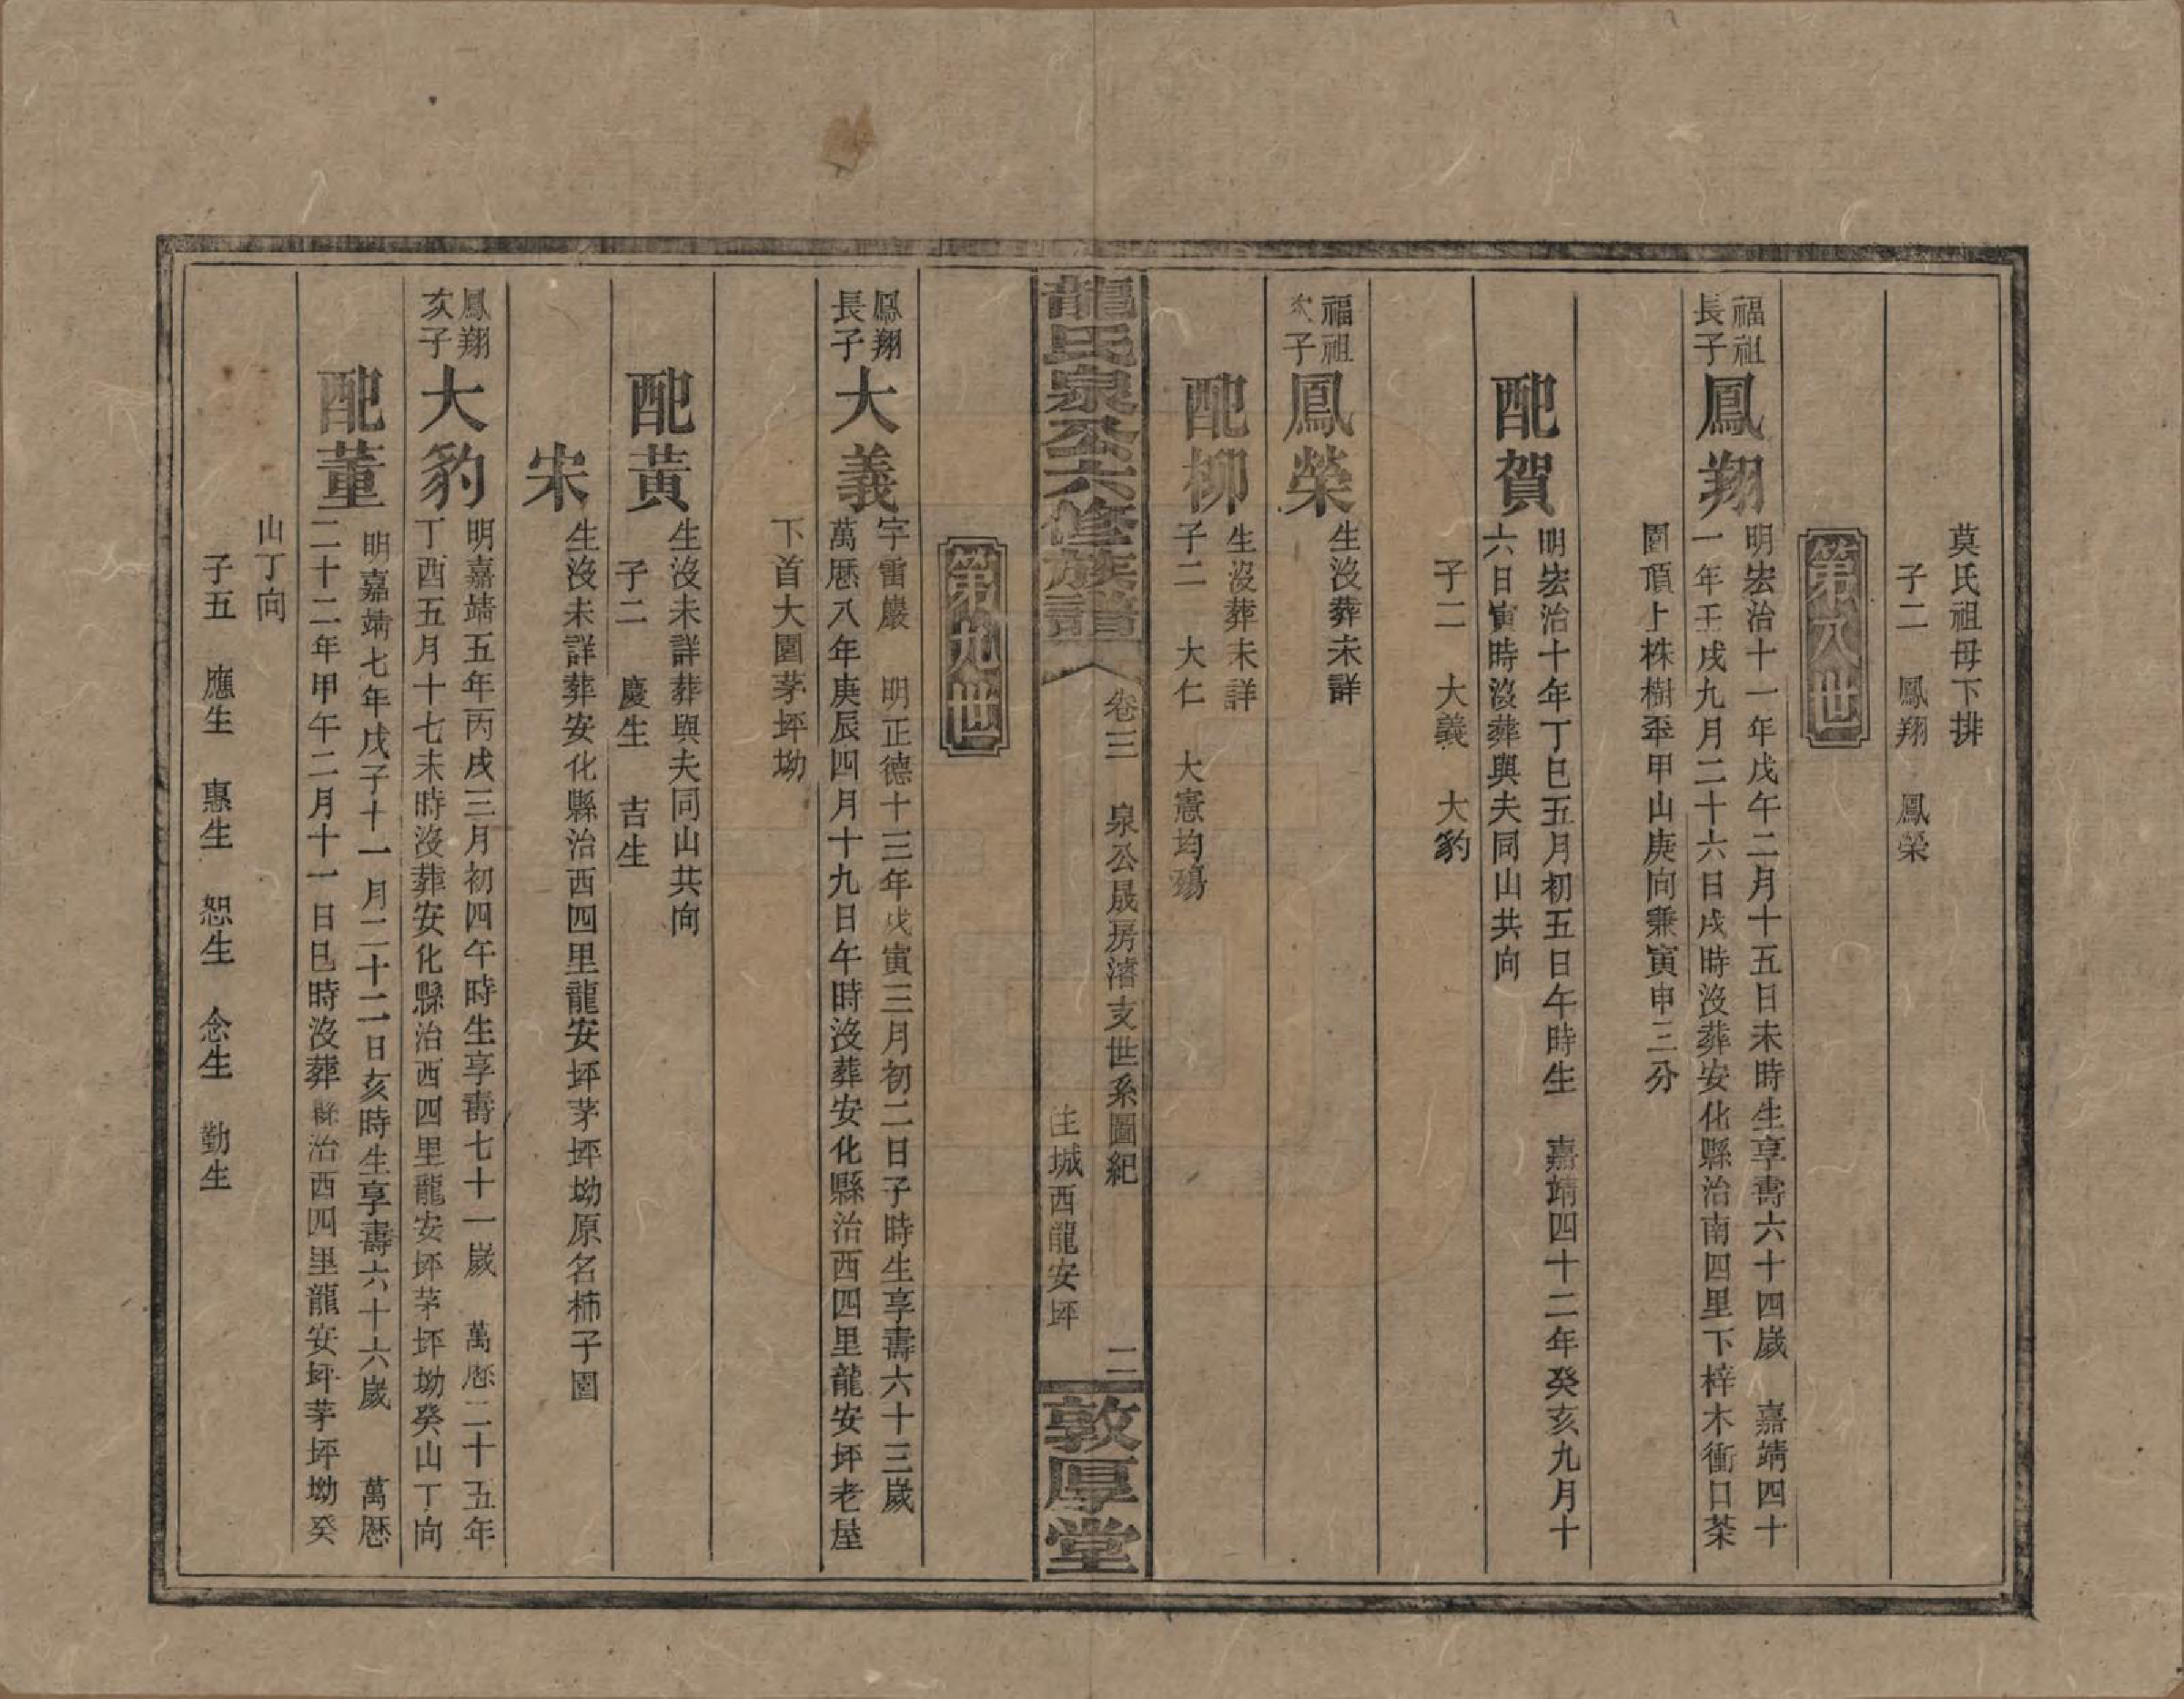 莫氏祖母下排
子二　鳳翔　鳳榮
第八世
福祖
長子
鳳翔
明宏治十一年戊午二月十五日未時生享壽六十四歲　嘉靖四十
一年壬戌九月二十六日戌時沒葬安化縣治南四里下梓木衝口茶
園頂上株樹坪甲山庚向兼寅申三分
配賀
明宏治十年丁巳五月初五日午時生　嘉靖四十二年癸亥九月十
六日寅時沒葬與夫同山共向
子二　大義　大豹
福祖
次子
鳳榮
生沒葬未詳
配柳
生沒葬未詳
子二　大仁　大憲均殤
龍氏泉公六修族譜
卷三　泉公晟房濬支世系圖紀　二
住城西龍安坪
敦厚堂
第九世
鳳翔
長子
大義
字雷巖　明正德十三年戊寅三月初二日子時生享壽六十三歲
萬厯八年庚辰四月十九日午時沒葬安化縣治西四里龍安坪老屋
下首大園茅坪坳
配黃
生沒未詳葬與夫同山共向
子二　慶生　吉生
宋
生沒未詳葬安化縣治西四里龍安坪茅坪坳原名柿子園
鳳翔
次子
大豹
明嘉靖五年丙戌三月初四午時生享壽七十一歲　萬厯二十五年
丁酉五月十七未時沒葬安化縣治西四里龍安坪茅坪坳癸山丁向
配董
明嘉靖七年戊子十一月二十二日亥時生享壽六十六歲　萬厯
二十二年甲午二月十一日巳時沒葬縣治西四里龍安坪茅坪坳癸
山丁向
子五　應生　惠生　恕生　念生　勤生